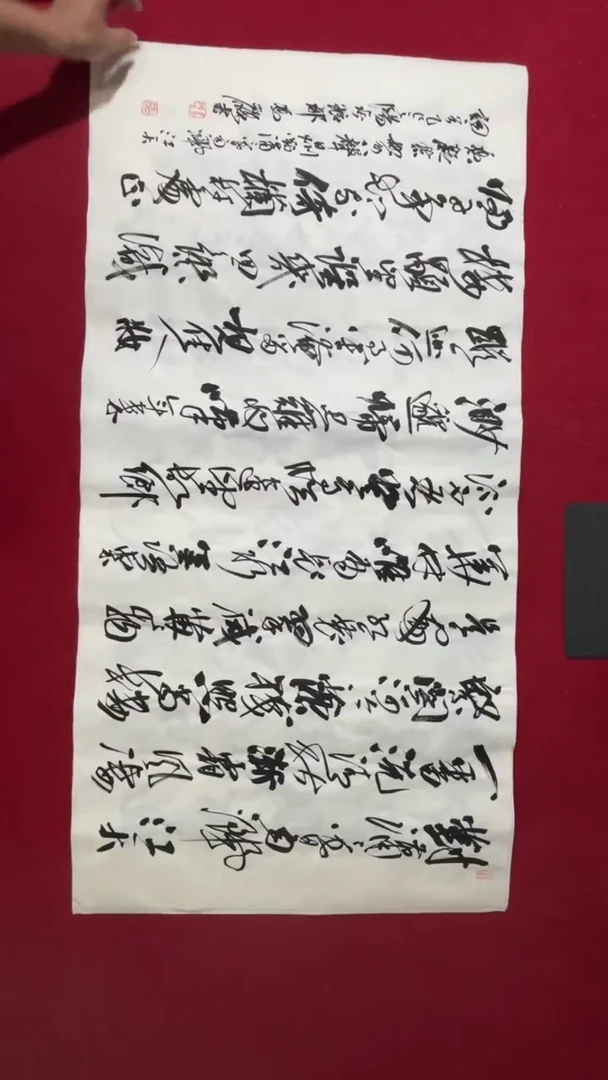 對瀟瀟暮雨灑江天
一番洗清秋漸霜風淒
緊關河冷落殘照當樓
是處紅衰翠減苒苒物
華休唯有長江水無語東
流不忍登高臨遠望故鄉
渺邈歸思難收嘆年來
蹤跡何事苦淹留想佳人妝
樓顒望誤幾回天際識
歸舟爭知我倚闌干處正
恁凝愁 八聲甘州對瀟瀟暮雨灑江天
詞 乙巳 書